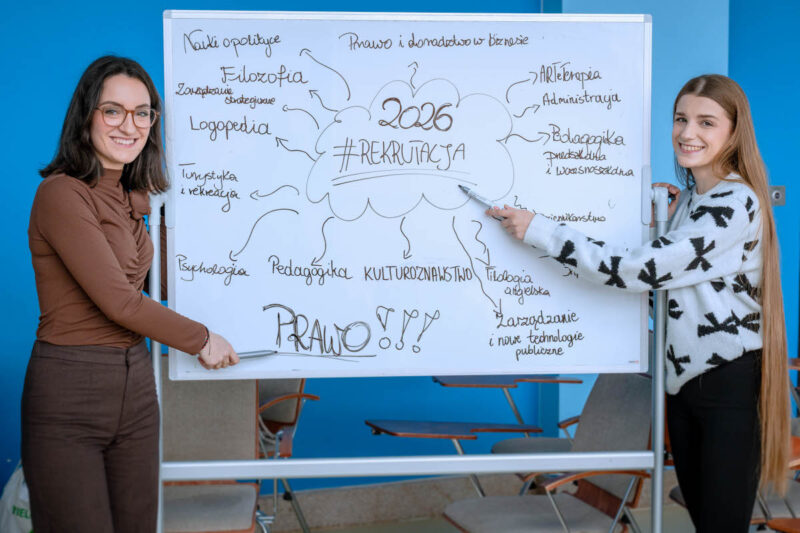 Nauki o polityce
Prawo i doradztwo w biznesie
Filozofia
Zarządzanie
strategiczne
Logopedia
Turystyka
i rekreacja
2026
#REKRUTACJA
ARTeterapia
Administracja
Pedagogika
przedszkolna
i wczesnoszkolna
Psychologia
Pedagogika
KULTUROZNAWSTWO
Filologia
angielska
Zarządzanie
i nowe technologie
publiczne
PRAWO!!!